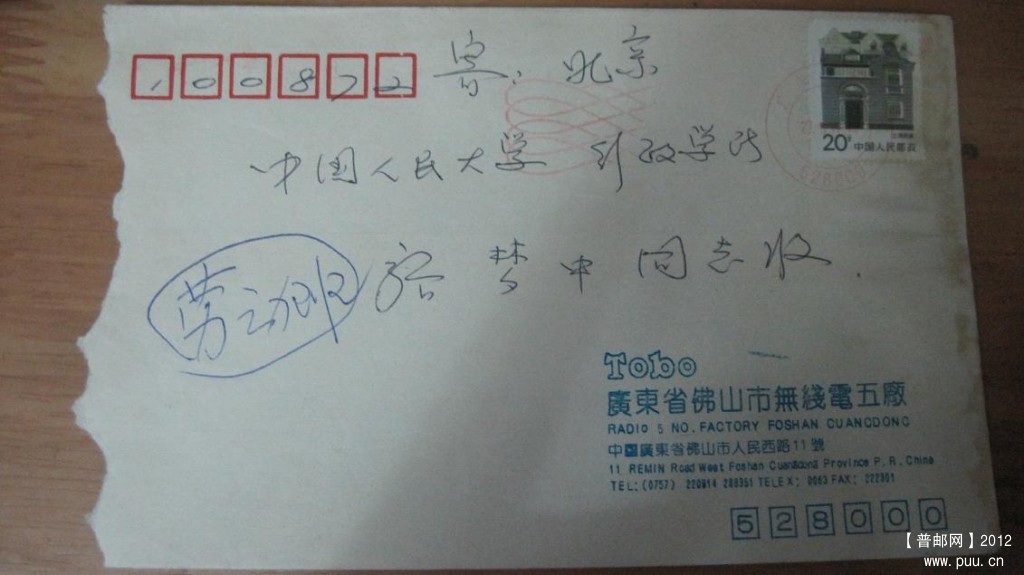 100872
寄：北京
20分 中国人民邮政
中国人民大学 行政学所
劳动服
同志收.
Tobo
廣東省佛山市無綫電五廠
RADIO 5 NO. FACTORY FOSHAN GUANGDONG
中國廣東省佛山市人民西路11號
11 REMIN Road West Foshan Guangdong Province P.R.China
TEL:(0757) 220914 286351 TELEX: 0063 FAX: 222901
528000
【普邮网】2012
www.puu.cn